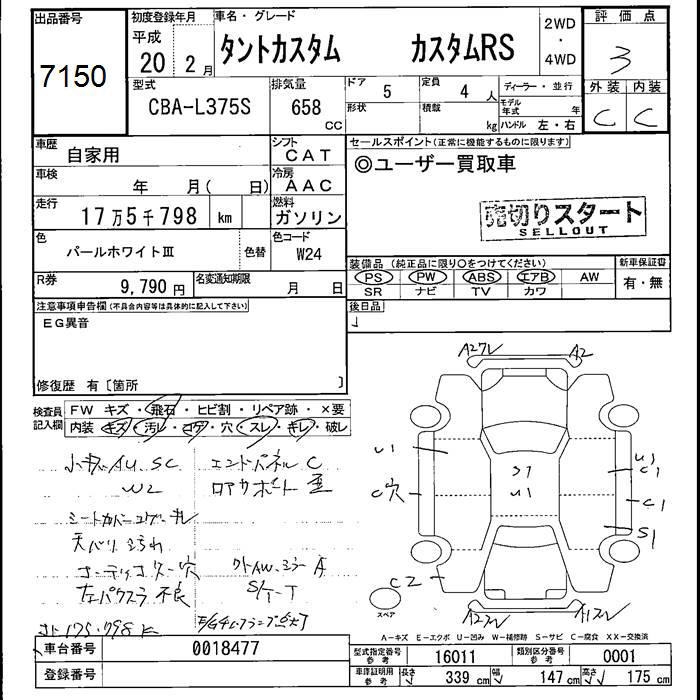 出品番号
7150
初度登録年月
平成
20 2月
車名・グレード
タントカスタム カスタムRS
2WD
・
4WD
評価点
3
外装 内装
C C
型式
CBA-L375S
排気量
658
CC
ドア
5
形状
定員
4人
積載
kg
ディーラー・並行
モデル年式 年
ハンドル 左・右
車歴
自家用
シフト
CAT
車検
年 月( 日)
冷房
AAC
走行
17万5千798 km
燃料
ガソリン
色
パールホワイトIII
色替
色コード
W24
R券
9,790円
名変通知期限
月 日
セールスポイント(正常に機能するものに限ります)
◎ユーザー買取車
売切りスタート
SELLOUT
装備品 (純正品に限り○をつけてください)
PS PW ABS エアB AW
SR ナビ TV カワ
新車保証書
有・無
後日品
注意事項申告欄(不具合内容等は具体的に記入して下さい)
EG異音
修復歴 有〔箇所 〕
検査員
記入欄
FW キズ・飛石・ヒビ割・リペア跡・×要
内装・キズ・汚レ・コゲ・穴・スレ・キレ・破レ
AU SC
W2
エンドパネル C
ロアサポート 歪
シートカバー コゲ キレ
天バリ 汚れ
穴
不良
175.798 K
A
S/T-T
A2 A2
U1
C穴
C2
U1
U1
C1
C1
S1
スペア
A-キズ E-エクボ U-凹み W-補修跡 S-サビ C-腐食 XX-交換済
車台番号
0018477
登録番号
型式指定番号
参考
16011
類別区分番号
参考
0001
車庫証明用
参考
長さ 339cm
幅 147cm
高さ 175cm